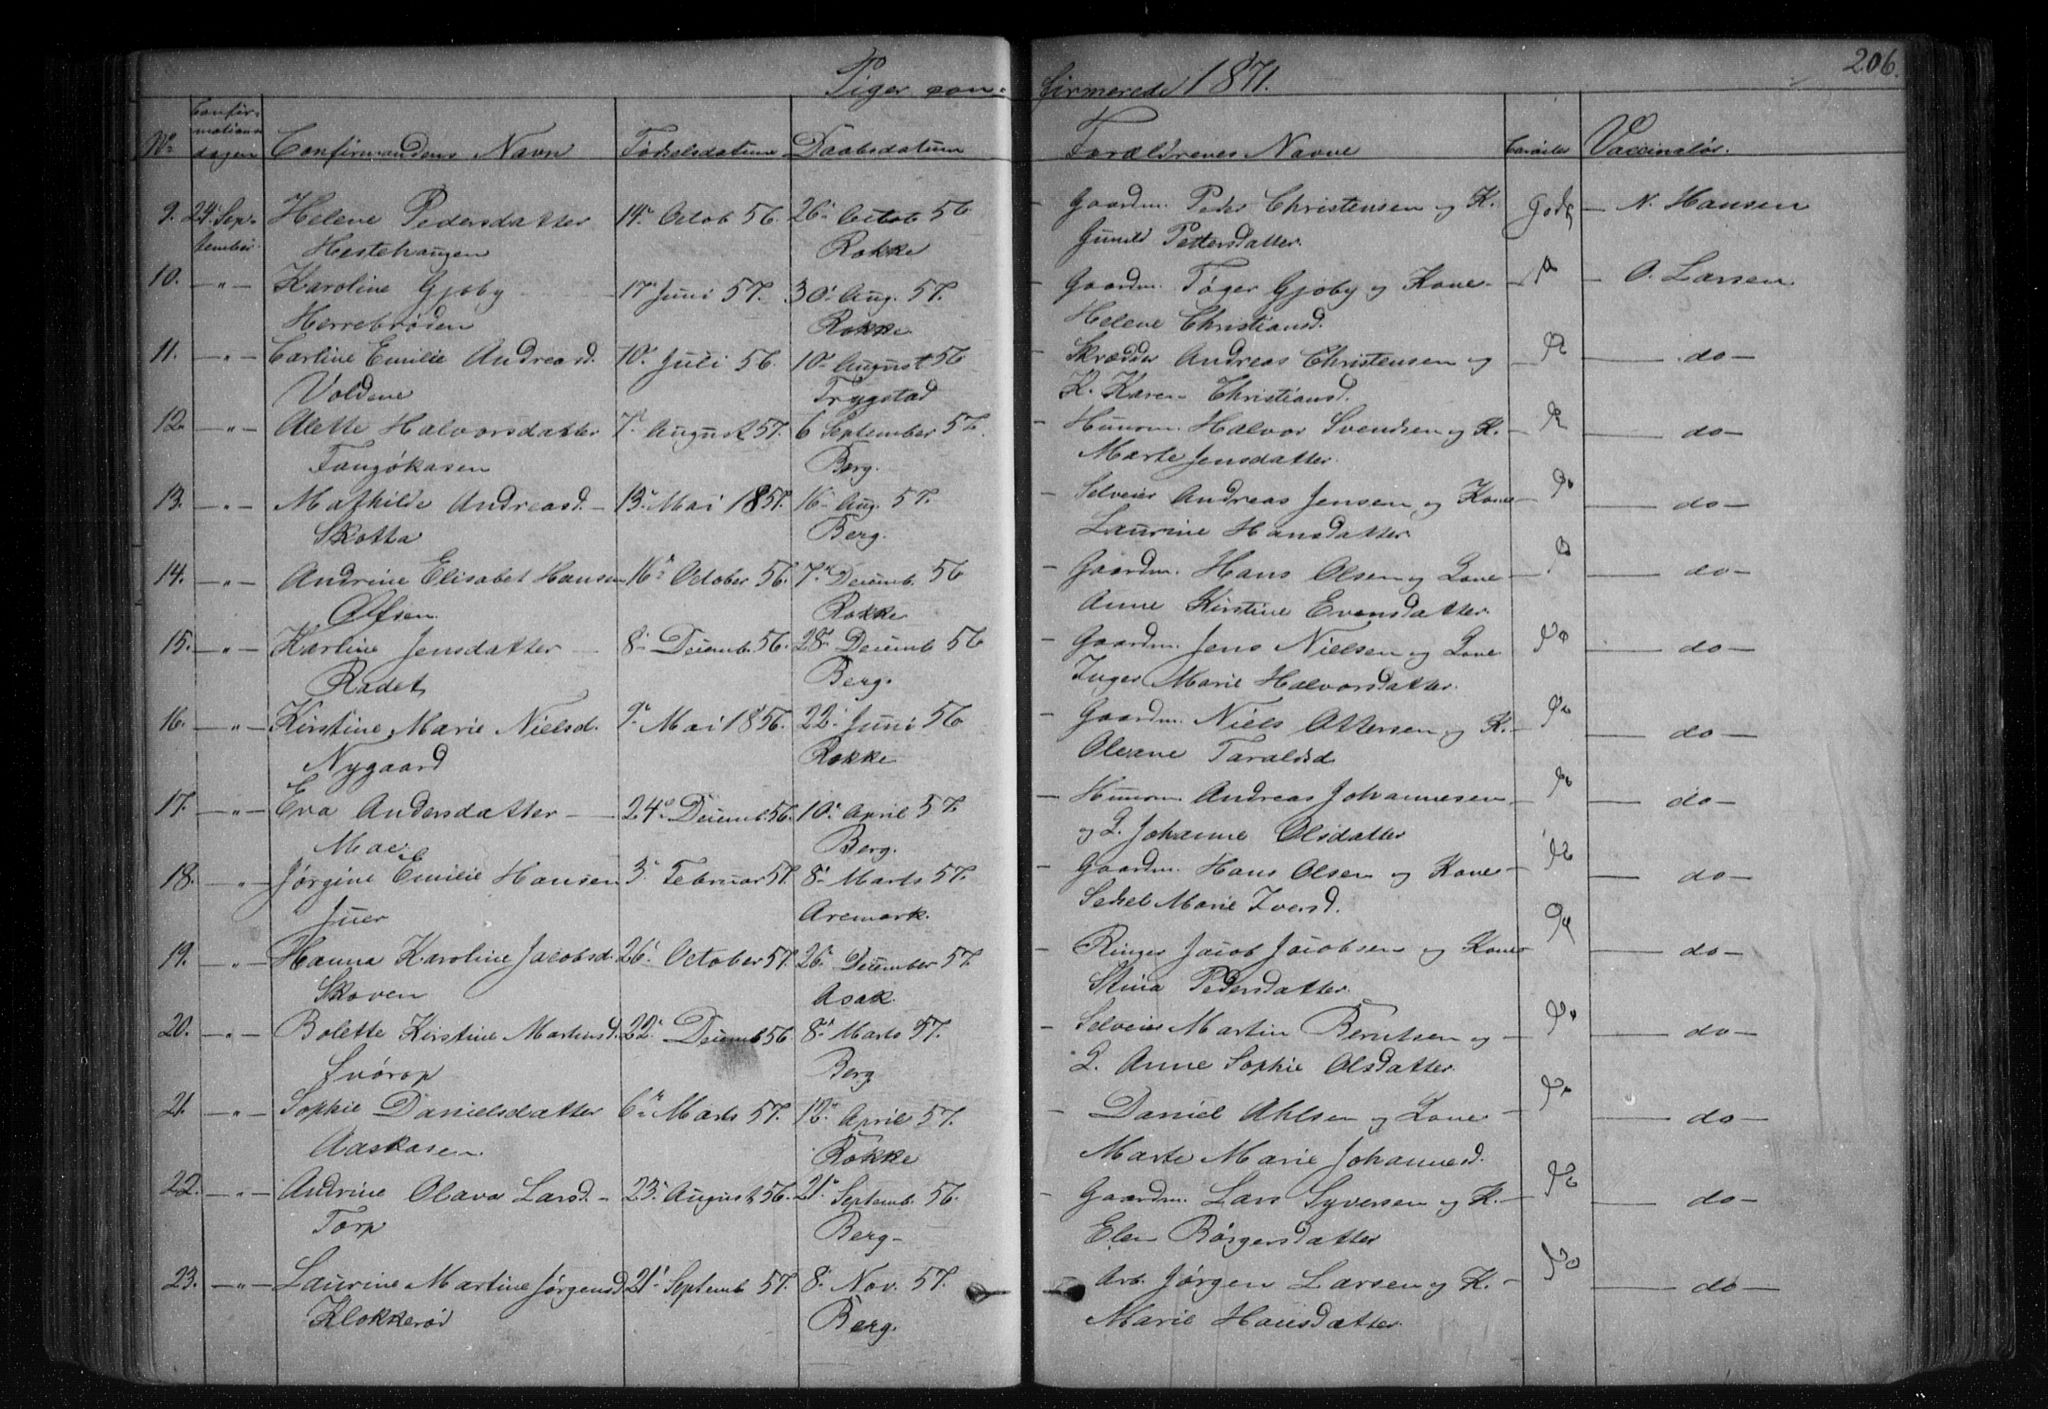 206.
Piger con- firmerede 1871.
No Confirmationsdagen Confirmandens Navn Fødselsdatum Daabsdatum Forældrenes Navne Vaccinatør.
9. 24' Sep- Helene Pedersdatter 14de Octob 56. 26' Octob 56 – Gaardm. Peder Christensen og K. Godt – N. Hansen
tember Hestehaugen Rokke Gunild Pettersdatter.
10. –"– Karoline Gjøby – 17' Juni 57. 30' Aug. 57. – Gaardm. Tøger Gjøby og Kone – O. Larsen
Herrebrøden Rokke Helene Christiansd.
11. –"– Carline Emilie Andreasd. 10' Juli 56. 10' August 56 – Skrædder Andreas Christensen og – do –
Voldene Trygstad K. Karen Christiansd.
12. –"– Alette Halvorsdatter 7' August 57. 6 September 57. – Huusm. Halvor Svendsen og K. – do –
Berg. Marte Jensdatter.
13. –"– Mathilde Andreasd. – 13' Mai 1857. 16' Aug. 57. – Selveier Andreas Jensen og Kone – do –
Skotta Berg. Laurine Hansdatter
14. –"– Andrine Elisabet Hansen 16' October 56. 7' Decemb. 56 – Gaardm. Hans Olsen og Kone – do –
Rokke Anne Kirstine Evensdatter
15. –"– Karline Jensdatter – 8' Decemb. 56. 28' Decemb 56 – Gaardm. Jens Nielsen og Kone – do –
Radet Berg. Inger Marie Halvorsdatter.
16. –"– Kirstine Marie Nielsd. 9' Mai 1856. 22' Juni 56 – Gaardm. Niels Ottersen og K. – do –
Nygaard Rokke Oleane Taraldsd
17. –"– Eva Andersdatter – 24' Decemb 56. 10' April 57. – Huusm. Andreas Johannesen – do –
Berg. og K. Johanne Olsdatter
18. –"– Jørgine Emilie Hansen 3' Februar 57. 8' Marts 57. – Gaardm. Hans Olsen og Kone – do –
Juer Aremark. Sedsel Marie Iversd.
19. –"– Hanna Karoline Jacobsd. 26' October 57. 26' December 57. – Ringer Jacob Jacobsen og Kone – do –
Skoven Asak. Stina Pedersdatter
20. –"– Bolette Kirstine Martinsd. 22' Decemb 56. 8' Marts 57. – Selveier Martin Berntsen og – do –
Svørop Berg K. Anne Sophie Olsdatter
21. –"– Sophie Danielsdatter 6' Marts 57. 12' April 57. – Daniel Ahlsen og Kone – do –
Aaskasen Rokke Marte Marie Johannesd.
22. –"– Andrine Olava Larsd. – 23' August 56. 21' Septemb. 56. – Gaardm. Lars Syversen og K. – do –
Torp Berg – Elen Børgersdatter
23. –"– Laurine Martine Jørgensd 21' Septemb 57. 8' Nov. 57. Arb. Jørgen Larsen og K. – do –
Klokkerød Berg. Marie Hansdatter.